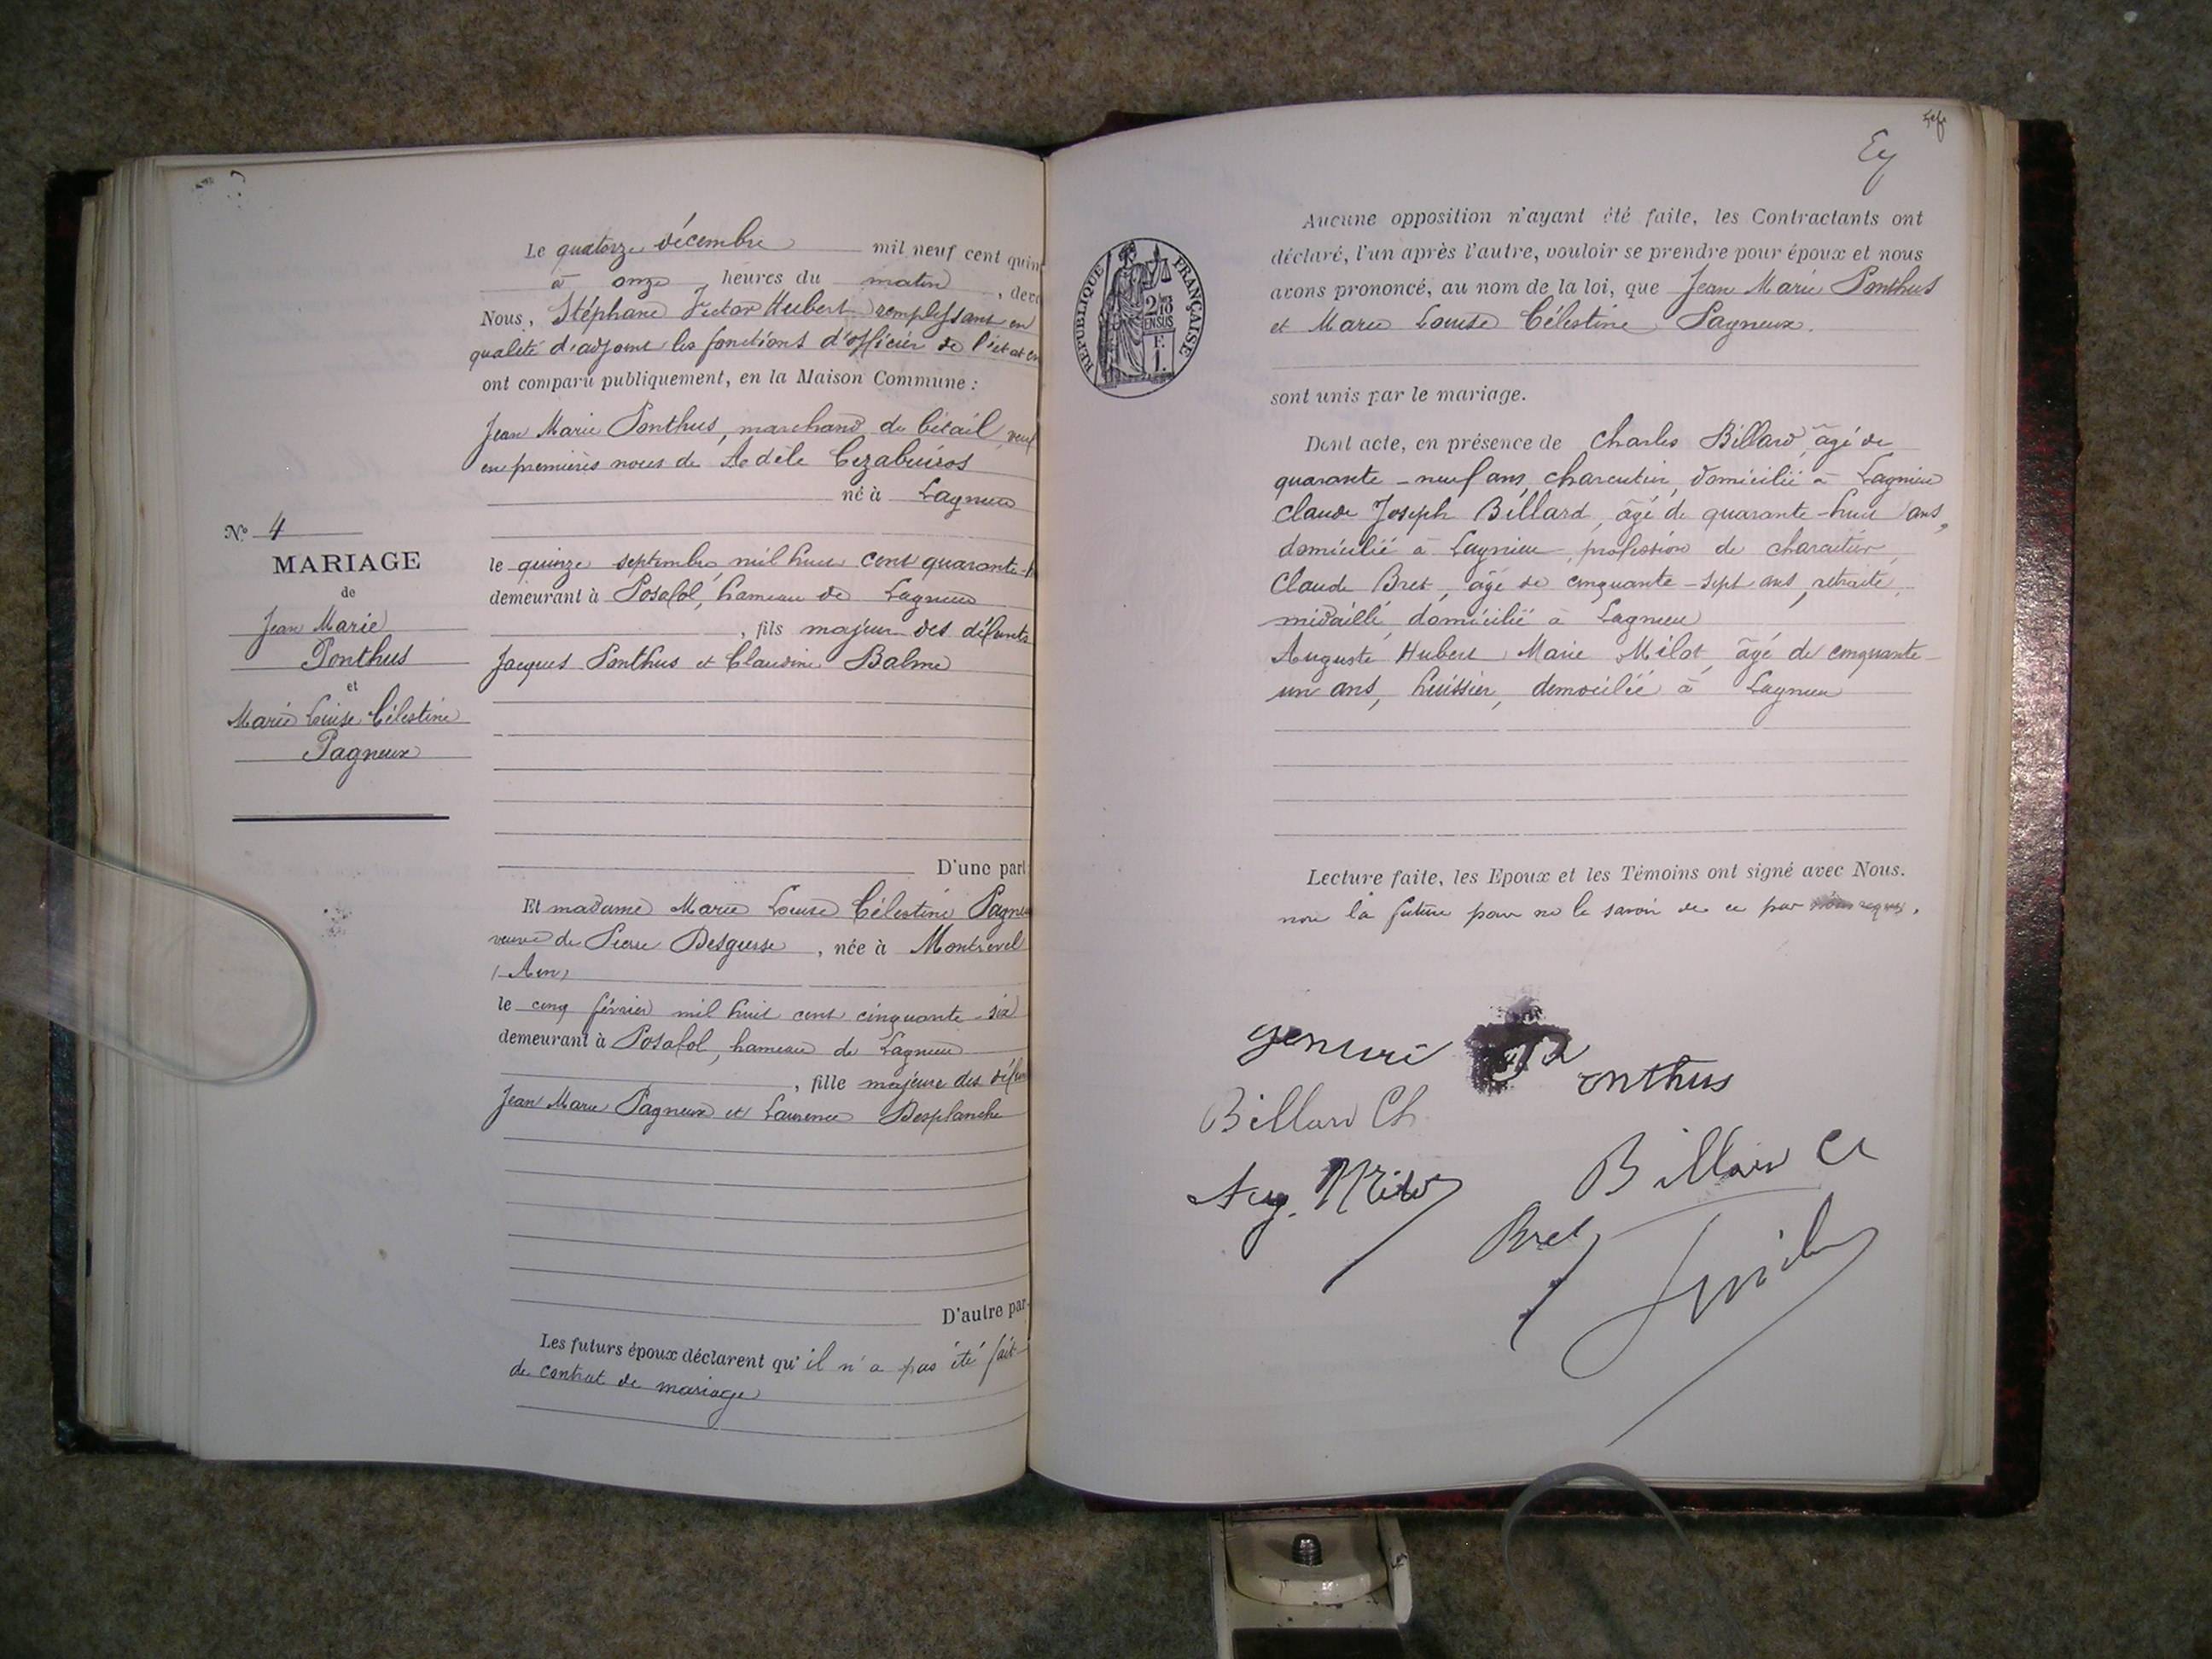 Le quatorze décembre mil neuf cent quin
à onze heures du matin, dev
Nous, Stéphane Victor Hubert remplissant en
qualité d'adjoint les fonctions d'officier de l'état
ont comparu publiquement, en la Maison Commune :
Jean Marie Ponthus, marchand de bétail, veuf
en premières noces de Adèle
né à Lagnieu
le quinze septembre mil huit cent quarante-
demeurant à Posafol, hameau de Lagnieu
, fils majeur des défunts
Jacques Ponthus et Claudine Balme
D'une part
Et madame Marie Louise Célestine Pagneu
veuve de Pierre , née à Montrevel
(Ain)
le cinq février mil huit cent cinquante-six
demeurant à Posafol, hameau de Lagnieu
, fille majeure des défun
Jean Marie Pagneux et Laurence Desplanche
D'autre par
Les futurs époux déclarent qu'il n'a pas été fait
de contrat de mariage
N° 4
MARIAGE
de
Jean Marie
Ponthus
et
Marie Louise Célestine
Pagneux
RÉPUBLIQUE FRANÇAISE
EN SUS
Aucune opposition n'ayant été faite, les Contractants ont
déclaré, l'un après l'autre, vouloir se prendre pour époux et nous
avons prononcé, au nom de la loi, que Jean Marie Ponthus
et Marie Louise Célestine Pagneux.
sont unis par le mariage.
Dont acte, en présence de Charles Billard, âgé de
quarante-neuf ans, charcutier, domicilié à Lagnieu
Claude Joseph Billard, âgé de quarante-huit ans,
domicilié à Lagnieu, profession de charcutier,
Claude Bret, âgé de cinquante-sept ans, retraité,
médaillé, domicilié à Lagnieu
Auguste Hubert Marie Milot, âgé de cinquante-
un ans, huissier, domicilié à Lagnieu
Lecture faite, les Epoux et les Témoins ont signé avec Nous.
non la future pour ne le savoir de ce par requis.
onthus
Billard Ch
Billard Cl
Aug. Milot
Bret